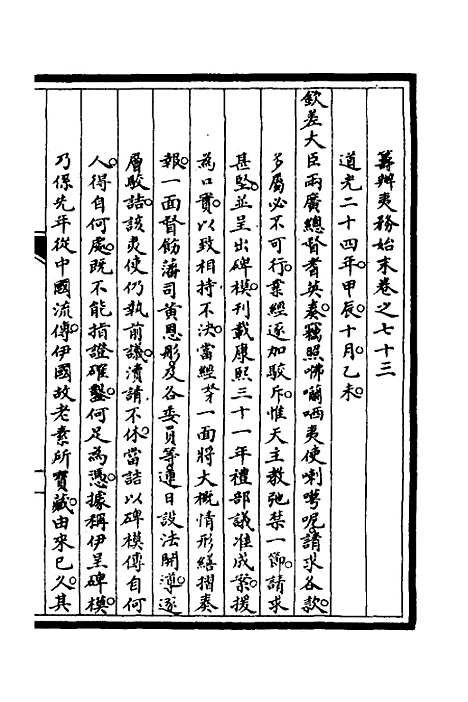 籌辦夷務始末卷之七十三
道光二十四年。甲辰。十月。乙未。
欽差大臣兩廣總督耆英奏。竊照咈囒哂夷使喇㗌呢。請求各款。
多屬必不可行。業經逐加駁斥。惟天主教弛禁一節。請求
甚堅。並呈出碑模。刊載康熙三十一年禮部議准成案。援
為口實。以致相持不決。當經一面將大概情形繕摺奏
報。一面督飭藩司黃恩彤。及各委員等。連日設法開導。逐
層駁詰。該夷使仍執前議。瀆請不休。當詰以碑模傳自何
人。得自何處。既不能指證確鑿。何足為憑。據稱伊呈碑模。
乃係先年從中國流傳。伊國故老素所寶藏。由來已久。其